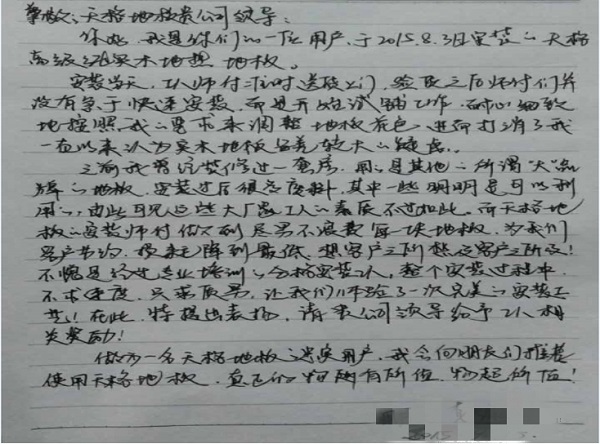 尊敬的天格地板贵公司领导:
你好,我是你们的一位用户,于2015.8.3日安装的天格
高级实木地热地板。
安装当天,工人师付准时送货上门,验货之后师付们并
没有急于快速安装,而是开始试铺工作,耐心细致
地按照我的需求来调整地板花色,进而打消了我
一直以来认为实木地板色差较大的疑虑。
之前我曾经装修过一套房,用的是其他的所谓"大"品
牌的地板,安装过后很多废料,其中一些明明是可以利
用的,由此可见这些大厂家工人的素质不过如此。而天格地
板的安装师付做到尽量不浪费每一块地板,为我们
客户节约,损耗降到最低,想客户之所想急客户之所急!
不愧是经过专业培训的合格安装工人,整个安装过程中
不求速度,只求质量,让我们体验了一次完美的安装工
艺!在此,特提出表扬,请贵公司领导给予工人相
关奖励!
做为一名天格地板忠实用户,我会向朋友们推荐
使用天格地板,真正的物有所值,物超所值!